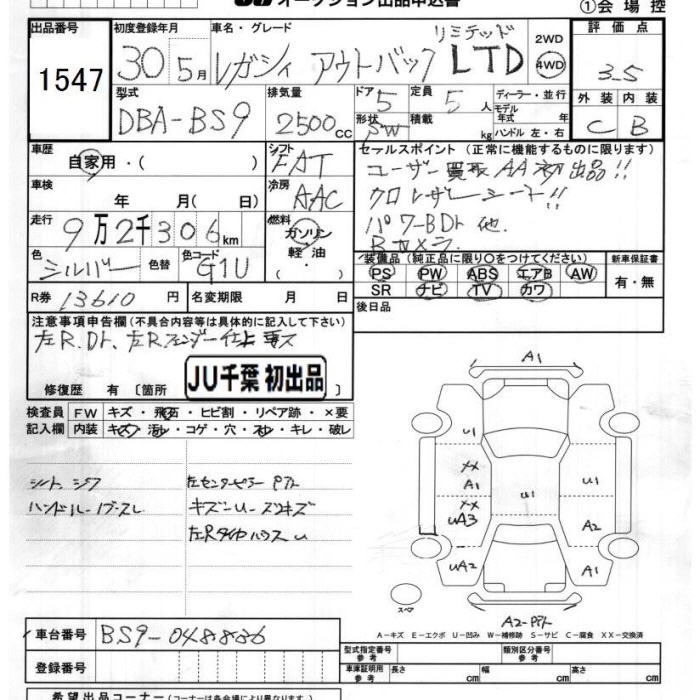 オークション出品申込書
①会場控
出品番号
1547
初度登録年月
30年5月
車名・グレード
リミテッド
レガシィ アウトバック LTD
2WD
4WD
評価点
3.5
外装 内装
C B
型式
DBA-BS9
排気量
2500cc
ドア 5
形状 SW
定員 5人
積載 kg
ディーラー・並行
モデル年式 年
ハンドル 左・右
車歴
自家用・( )
シフト
FAT
セールスポイント(正常に機能するものに限ります)
ユーザー買取AA初出品!!
クロレザーシート!!
パワーBDr 他.
Bカメラ.
車検
年 月( 日)
冷房
AAC
走行
9万2千306km
燃料
ガソリン
軽油・
色
シルバー
色替
色コード
G1U
装備品(純正品に限り○をつけてください)
PS PW ABS エアB AW
SR ナビ TV カワ
新車保証書
有・無
R券 13610円
名変期限 月 日
後日品
注意事項申告欄(不具合内容等は具体的に記入して下さい)
左R.Dr、左Rフェンダー仕上
修復歴 有〔箇所
JU千葉 初出品
検査員 FW キズ・飛石・ヒビ割・リペア跡・×要
記入欄 内装 キズ・汚・コゲ・穴・スレ・キレ・破レ
シート シワ
ハンドル
左センターピラー
キズ
左Rタイヤハウス U
A1
U1
XX
A1
XX
UA3
UA2
U1
U1
A2
A1
スペア
A2
A-キズ E-エクボ U-凹み W-補修跡 S-サビ C-腐食 XX-交換済
車台番号
BS9-048886
登録番号
型式指定番号 参考
類別区分番号 参考
車庫証明用 参考
長さ cm
幅 cm
高さ cm
希望出品コーナー(コーナーは各会場により異なります。)